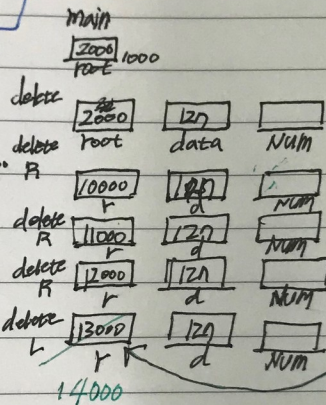 main
2000
root 1000
delete 2000 127
root data Num
delete
R
10000
r d Num
delete 11000 127
R r d Num
delete 12000 127
R r d Num
delete 13000 127
L r d Num
14000